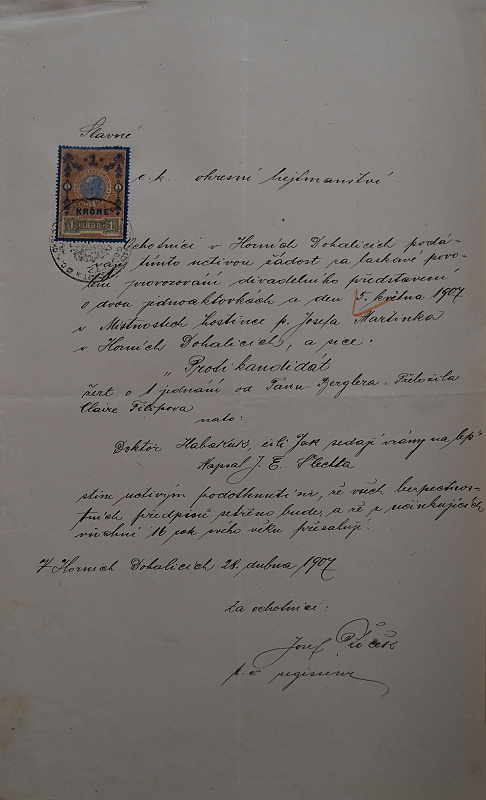 Slavné
1
KRONE
1 1898 1
c. k. okresní hejtmanství.
Ochotníci v Horních Dohalicích podá-
tímto uctivou žádost za laskavé povo-
lení provozování divadelního představení
o dvou jednoaktovkách a den 5. května 1907
v Místnostech hostince p. Josefa Martinka
v Horních Dohalicích, a sice:
"Protikandidát
žert o 1 jednání od Hanu Berglera. Přeložila
Claire Filipova
nato:
Doktor Habakuk, čili Jak sedají vrány na lep"
Napsal J. E. Šlechta
stím uctivým podotknutím, že všech bezpečnos-
tních předpisů šetřeno bude, a že z účinkujících
všichni 16 rok svého věku přesahují.
V Horních Dohalicích 28. dubna 1907
Za ochotníci:
Josef
t. č. regisseur